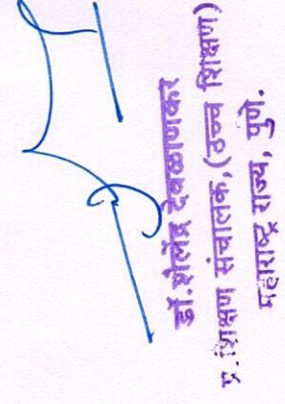 डॉ.शैलेंद्र देवळाणकर
प्र.शिक्षण संचालक,(उच्च शिक्षण)
महाराष्ट्र राज्य, पुणे.